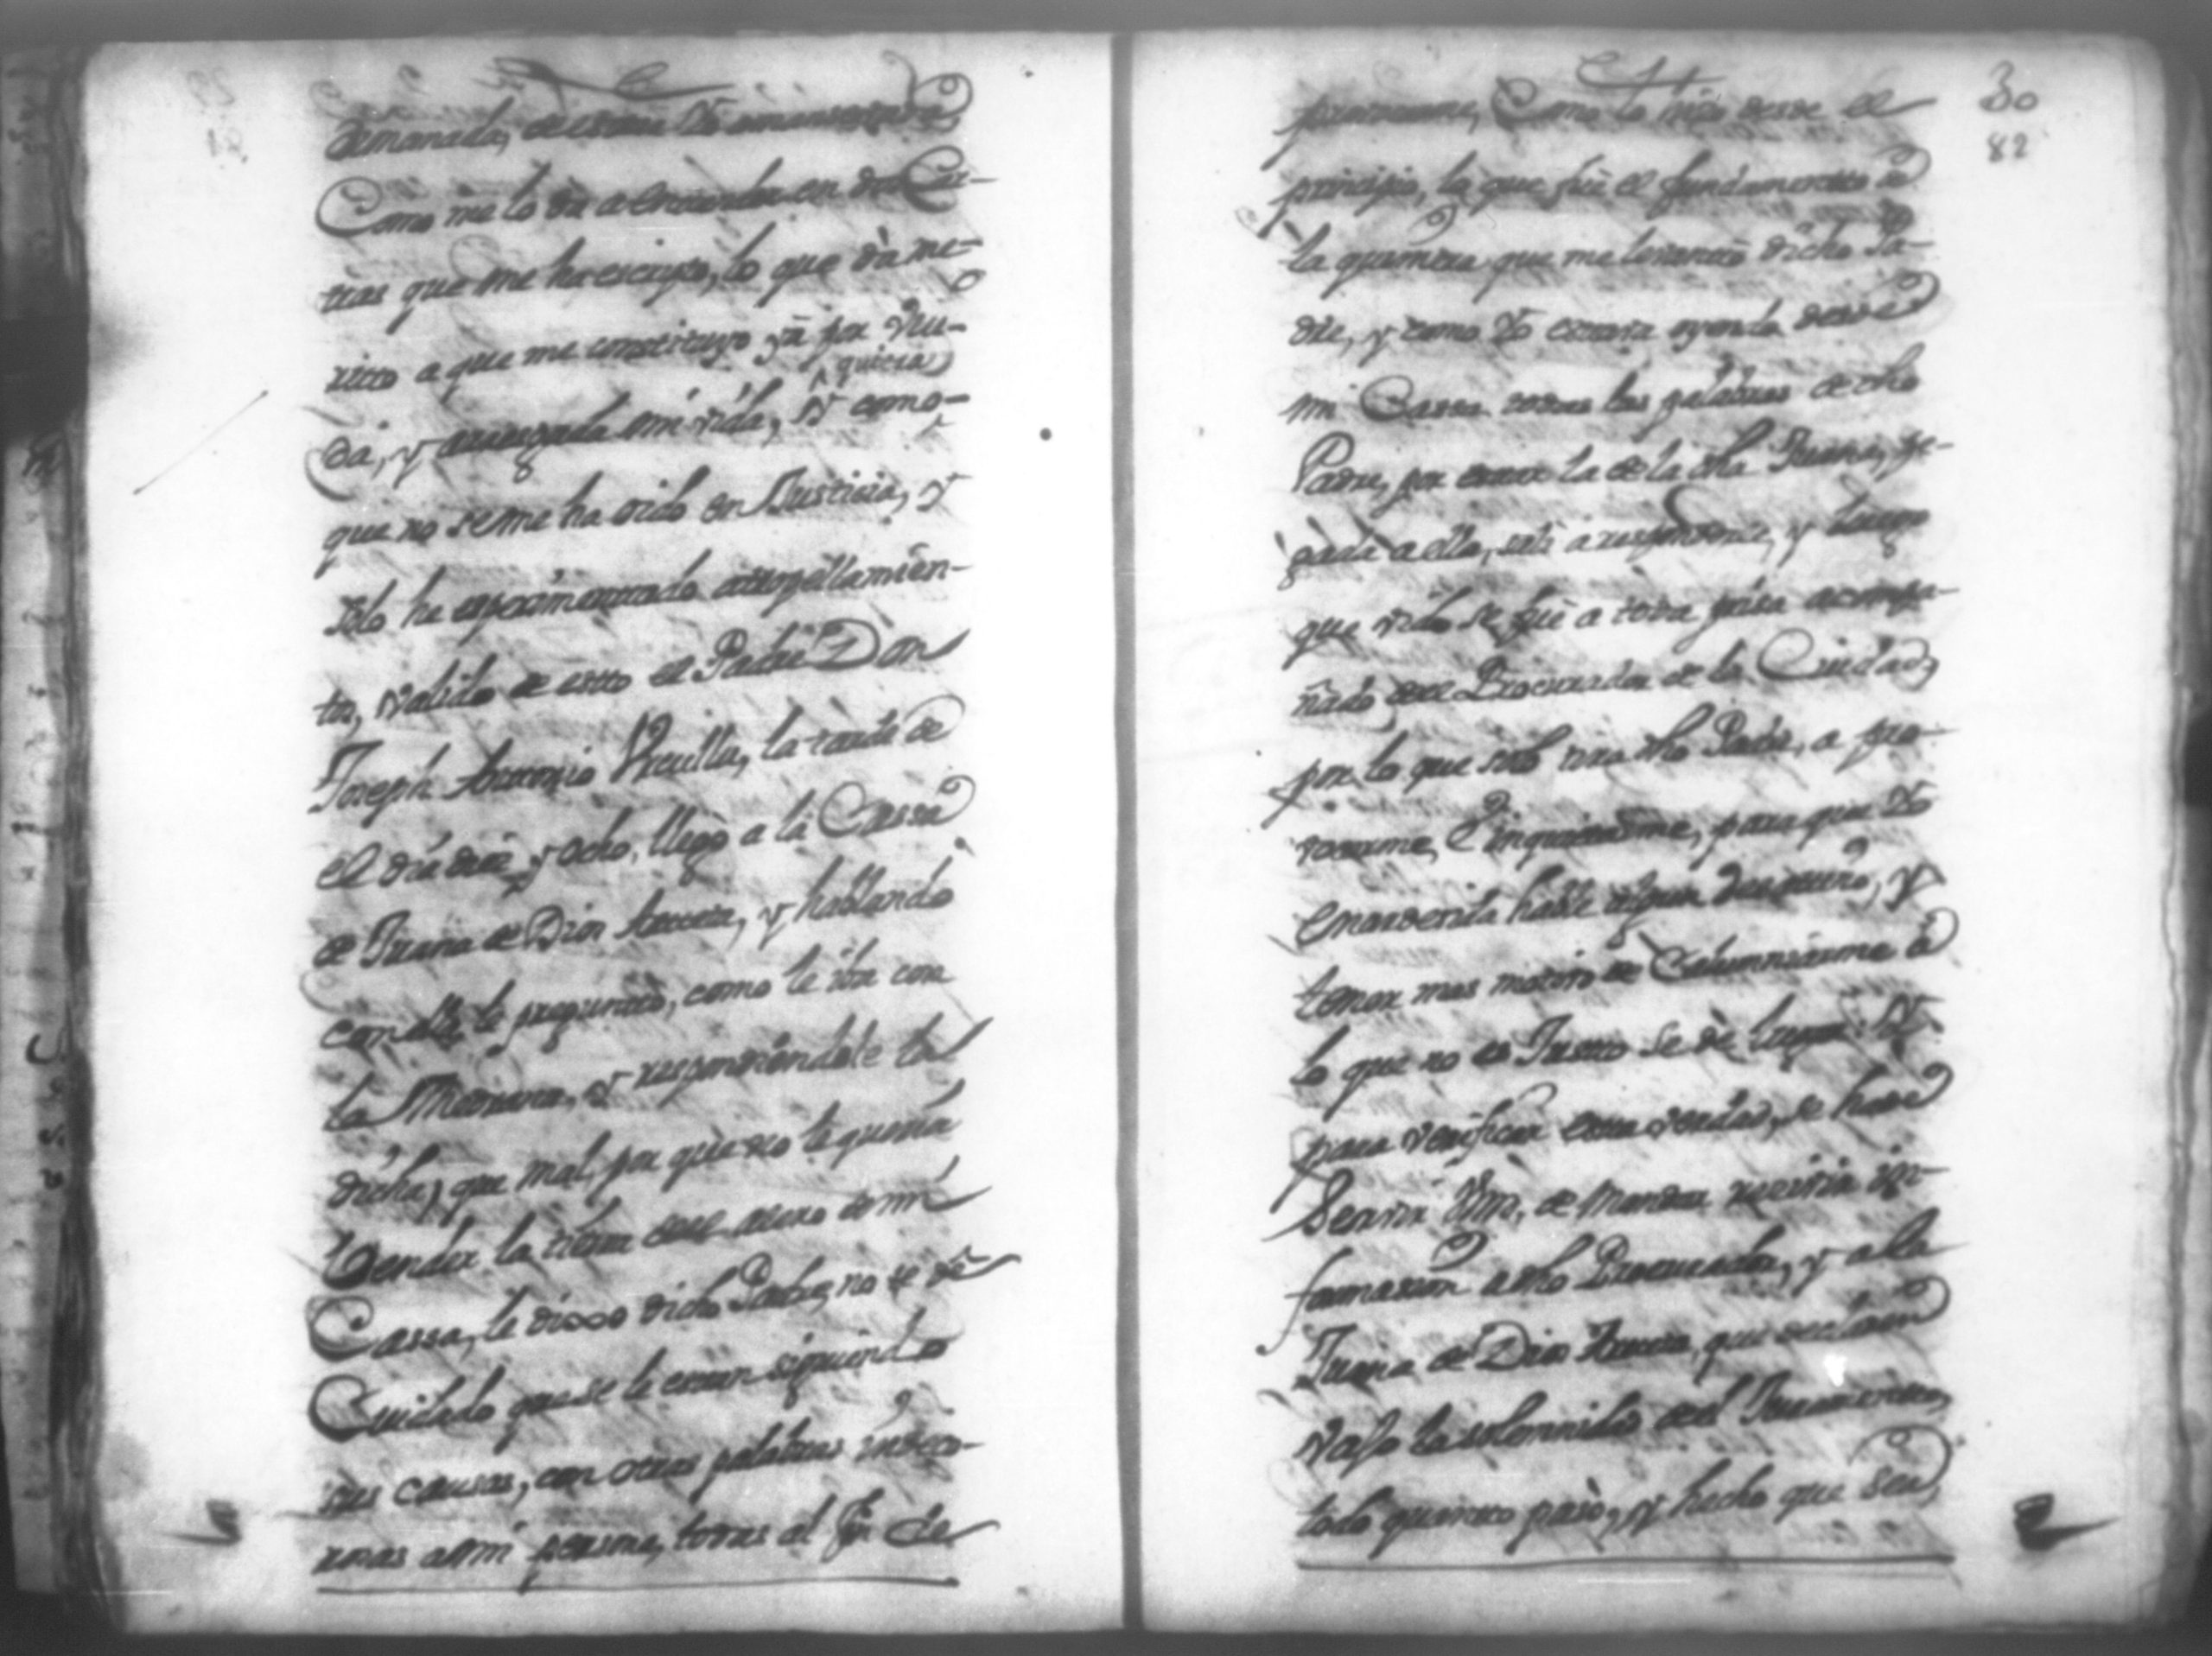 demanda, de estar Yo amenazada,
Como me lo da a entender en dos Car-
tas que me ha escripto, lo que dà me-
ritto a que me constituyo ya por Viu-
quieta
da, y arriesgada mi vida, y como
que no se me ha oido en Justicia, y
solo he esperimentado atropellamien-
tos, valido de estto el Padre Don
Joseph Antonio Urcullu, la tarde de
el dia diez y ocho, llegò a la Cassa
de Juana de Dios Azcueta, y hablando
con ella le preguntò, como le iba con
la Medrano, y respondiendole la
dicha, que mal, por que no le queria
Vender la tienda del altto de mi
Cassa, le dixo dicho Padre, no se dè
Cuidado que se le estan siguiendo
sus causas, con otras palabras indeco-
rosas a mi persona, todas al fin de
Como lo hizo desde el
principio, la que fuè el fundamentto a
la quimera que me levantò dicho Pa-
dre, y como Yo estava oyendo desde
mi Cassa todas las palabras de dho
Padre, por estar la de la dha Juana, pe-
gada a ella, salì a responderle, y luego
que vido se fuè a toda prisa acompa-
ñado del Procurador de la Ciudad,
por lo que solo tira dho Padre, a pro-
vocarme, è inquietarme, para que Yo
enardesida hable algun desatino, y
tener mas motivo de Calumniarme a
lo que no es Justo se dè lugar. Y
para verificar esta verdad, se hade
Servir Vm, de mandar recivir in-
formazion a dho Procurador, y a la
Juana de Dios Azcueta, que declaren
vajo la solemnidad del Juramento,
todo quantto pasò, y hecho que sea,
30
82